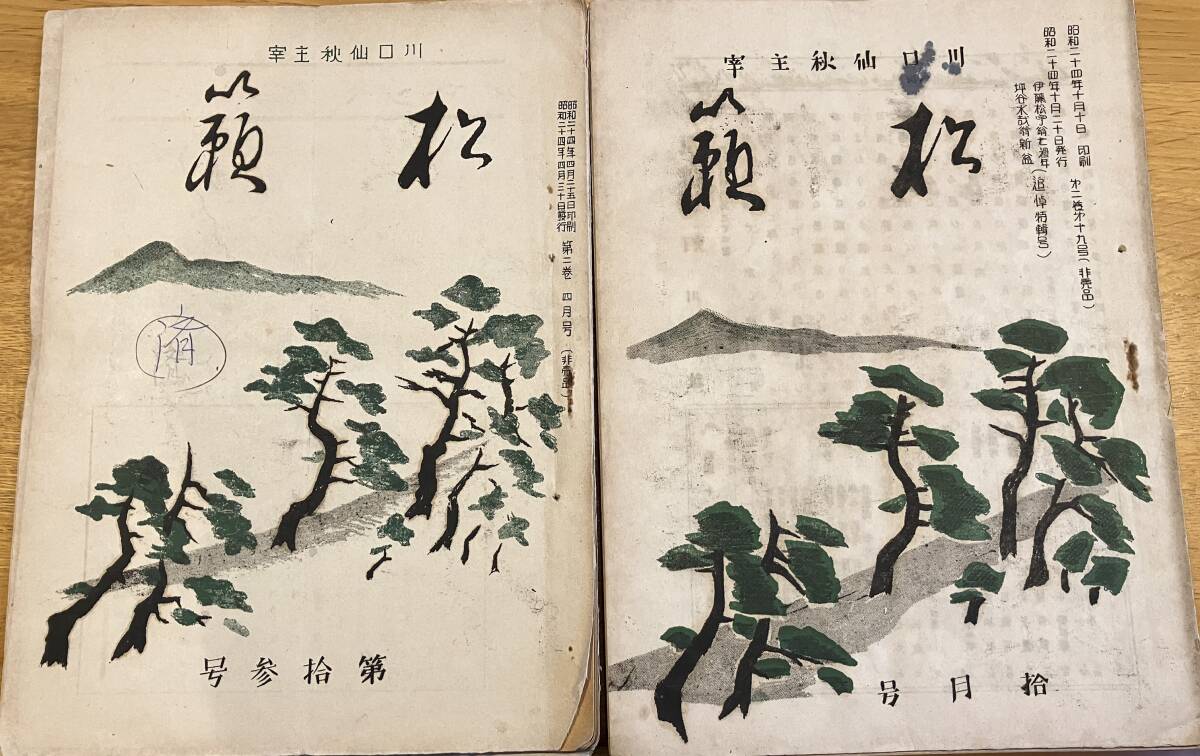 川口仙秋主宰
松籟
昭和二十四年四月二十五日印刷
昭和二十四年四月三十日發行 第二巻 四月号 (非売品)
済
第拾参号
川口仙秋主宰
松籟
昭和二十四年十月十日 印刷 第二巻第十九号(非売品)
昭和二十四年十月二十日発行
伊藤松宇翁七週年
坪谷水哉翁新盆
(追悼特輯号)
拾月号